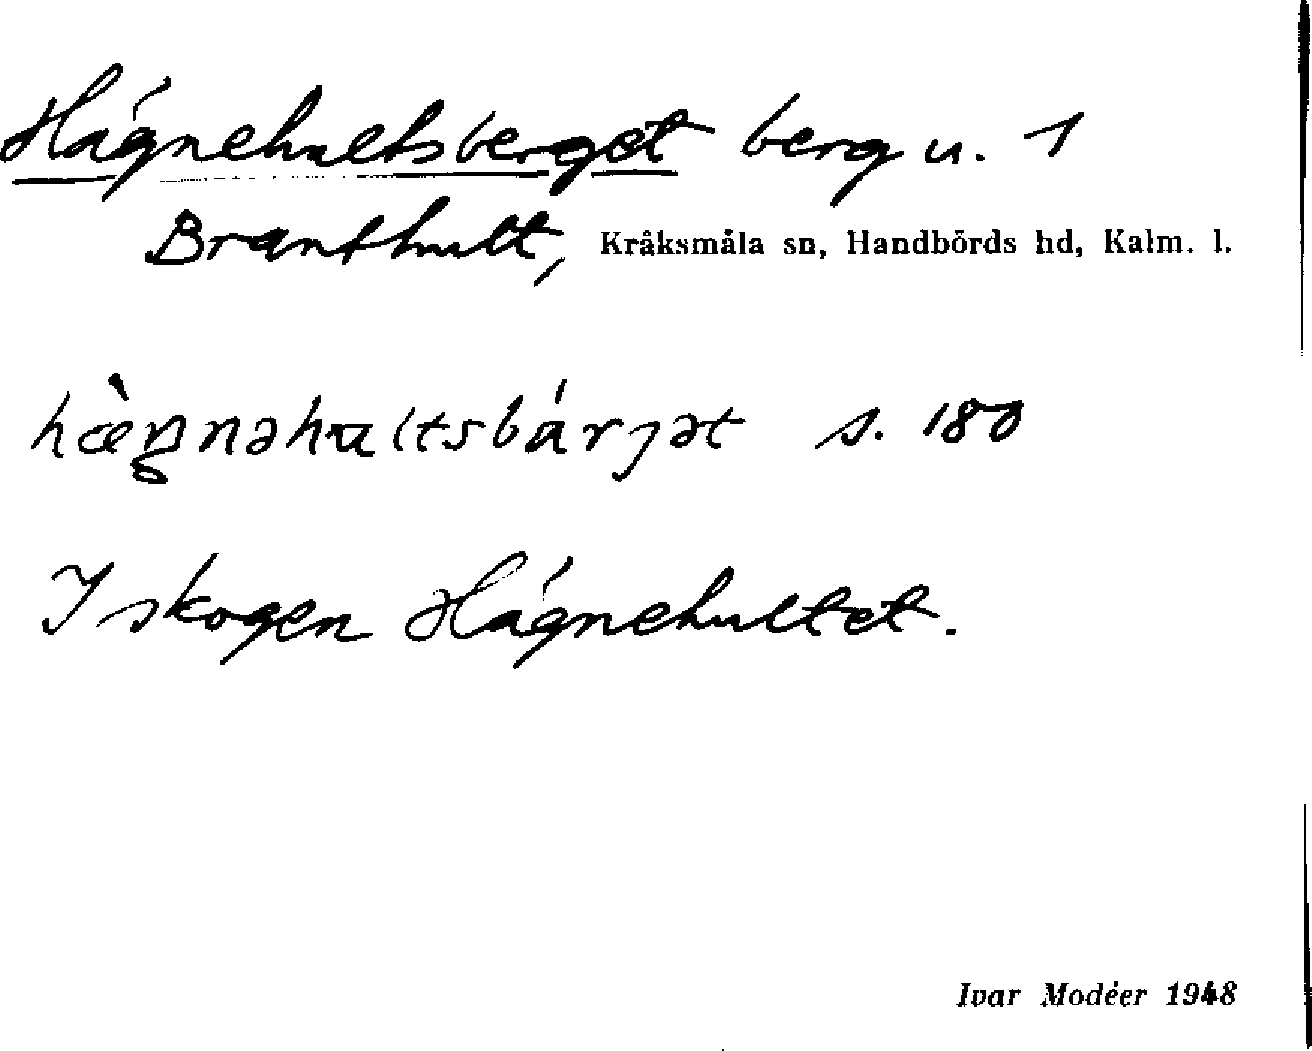 Hágnehultsberget berg u. 1
Branthult, Kråksmåla sn, Handbörds hd, Kalm. l.
hæ̀ŋnəhultsbárjət s. 180
I skogen Hágnehultet.
Ivar Modéer 1948